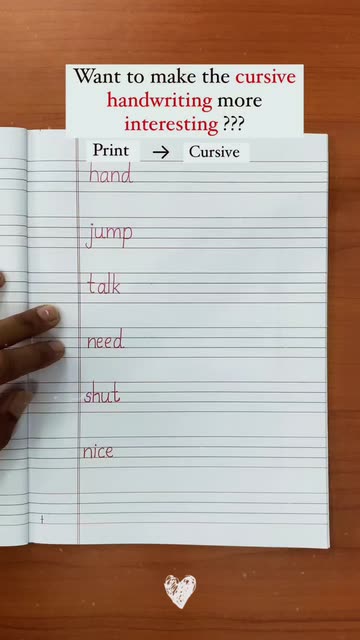 Want to make the cursive
handwriting more
interesting ???
Print → Cursive
hand
jump
talk
need
shut
nice